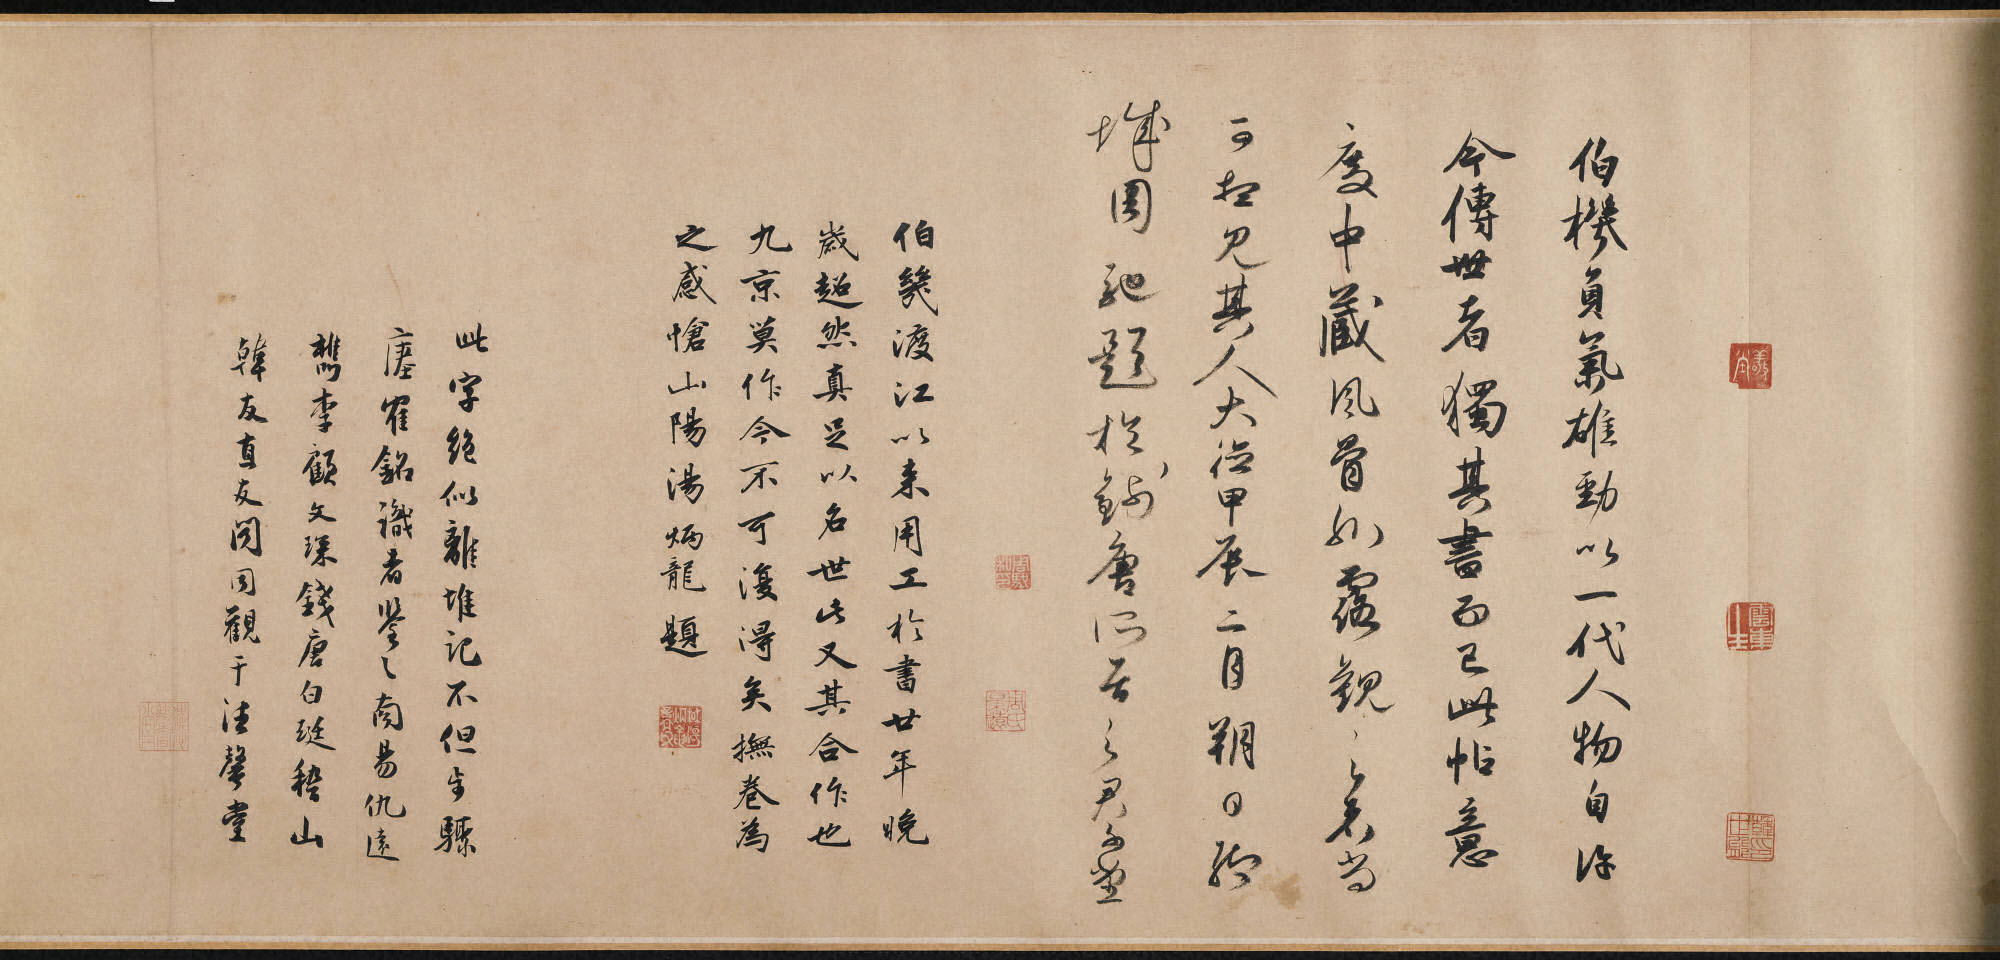 伯機負氣雄勁以一代人物自許
今傳世者獨其書而已此帖意
度中藏風骨外露觀之者尚
可想見其人大德甲辰二月朔日郯
城周馳題於錢唐所居之君子堂
伯幾渡江以來用工於書廿年晚
歲超然真足以名世此又其合作也
九京莫作今不可復得矣撫卷為
之感愴山陽湯炳龍題
此字絕似離堆記不但步驟
瘞鶴銘識者鑒之南昜仇遠
檇李顧文琛錢唐白珽嵇山
韓友直友聞同觀于清馨堂